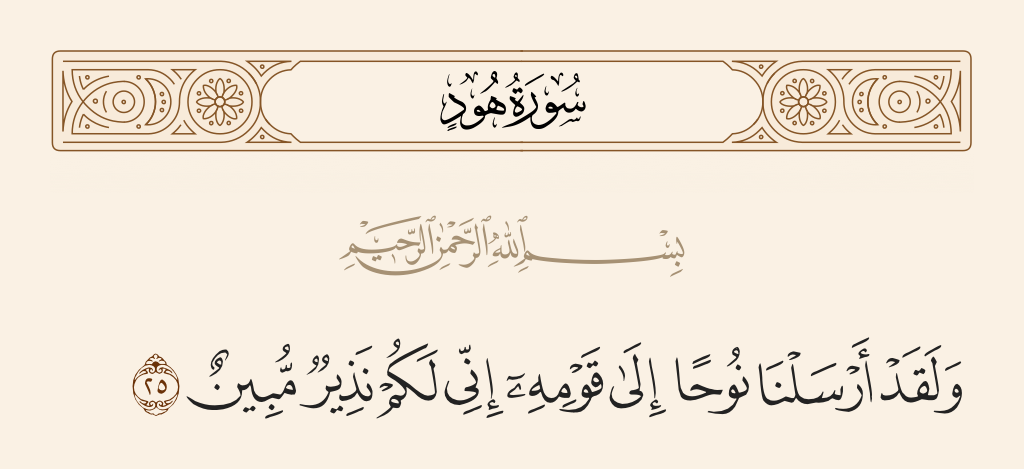 سُورَةُ هُودٍ
بِسْمِ ٱللَّهِ ٱلرَّحْمَٰنِ ٱلرَّحِيمِ
وَلَقَدْ أَرْسَلْنَا نُوحًا إِلَىٰ قَوْمِهِۦٓ إِنِّى لَكُمْ نَذِيرٌ مُّبِينٌ ٢٥